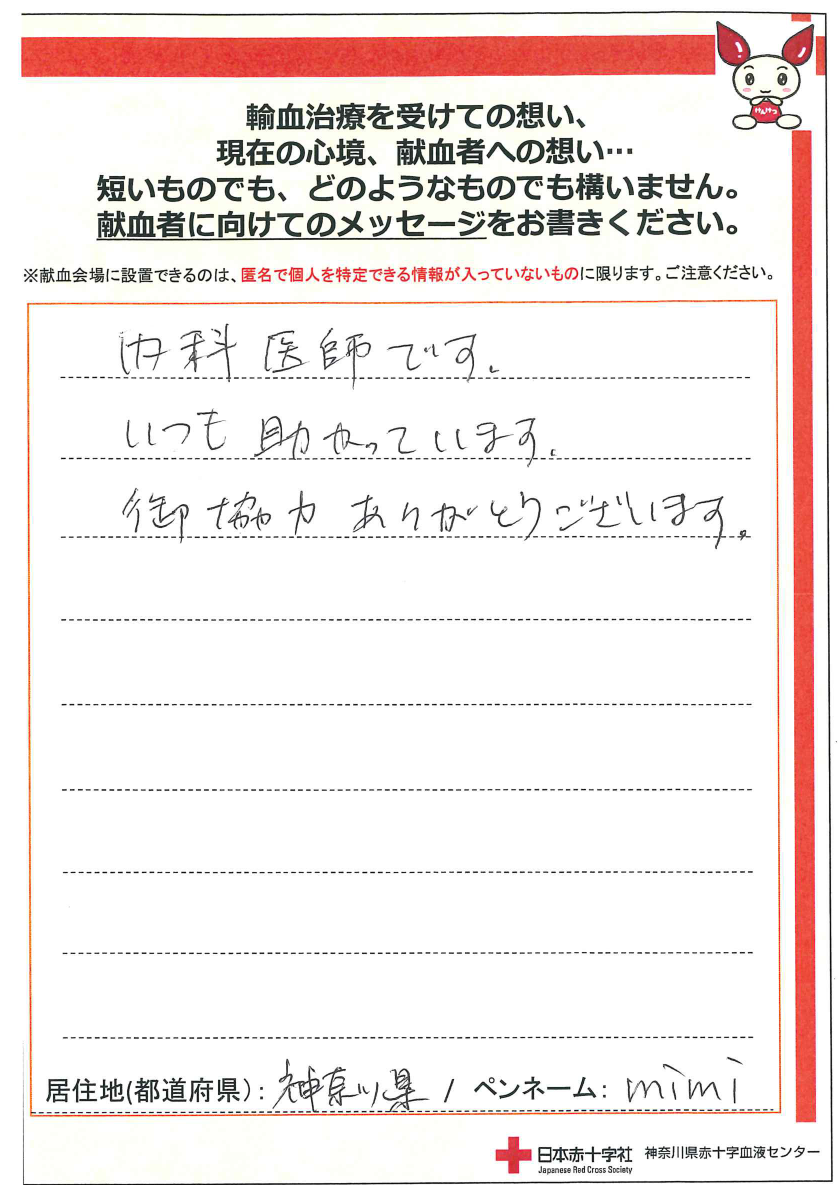 けんけつ
輸血治療を受けての想い、
現在の心境、献血者への想い…
短いものでも、どのようなものでも構いません。
献血者に向けてのメッセージをお書きください。
※献血会場に設置できるのは、匿名で個人を特定できる情報が入っていないものに限ります。ご注意ください。
内科医師です。
いつも助かっています。
御協力ありがとうございます。
居住地(都道府県): 神奈川県 / ペンネーム: mimi
日本赤十字社 神奈川県赤十字血液センター
Japanese Red Cross Society